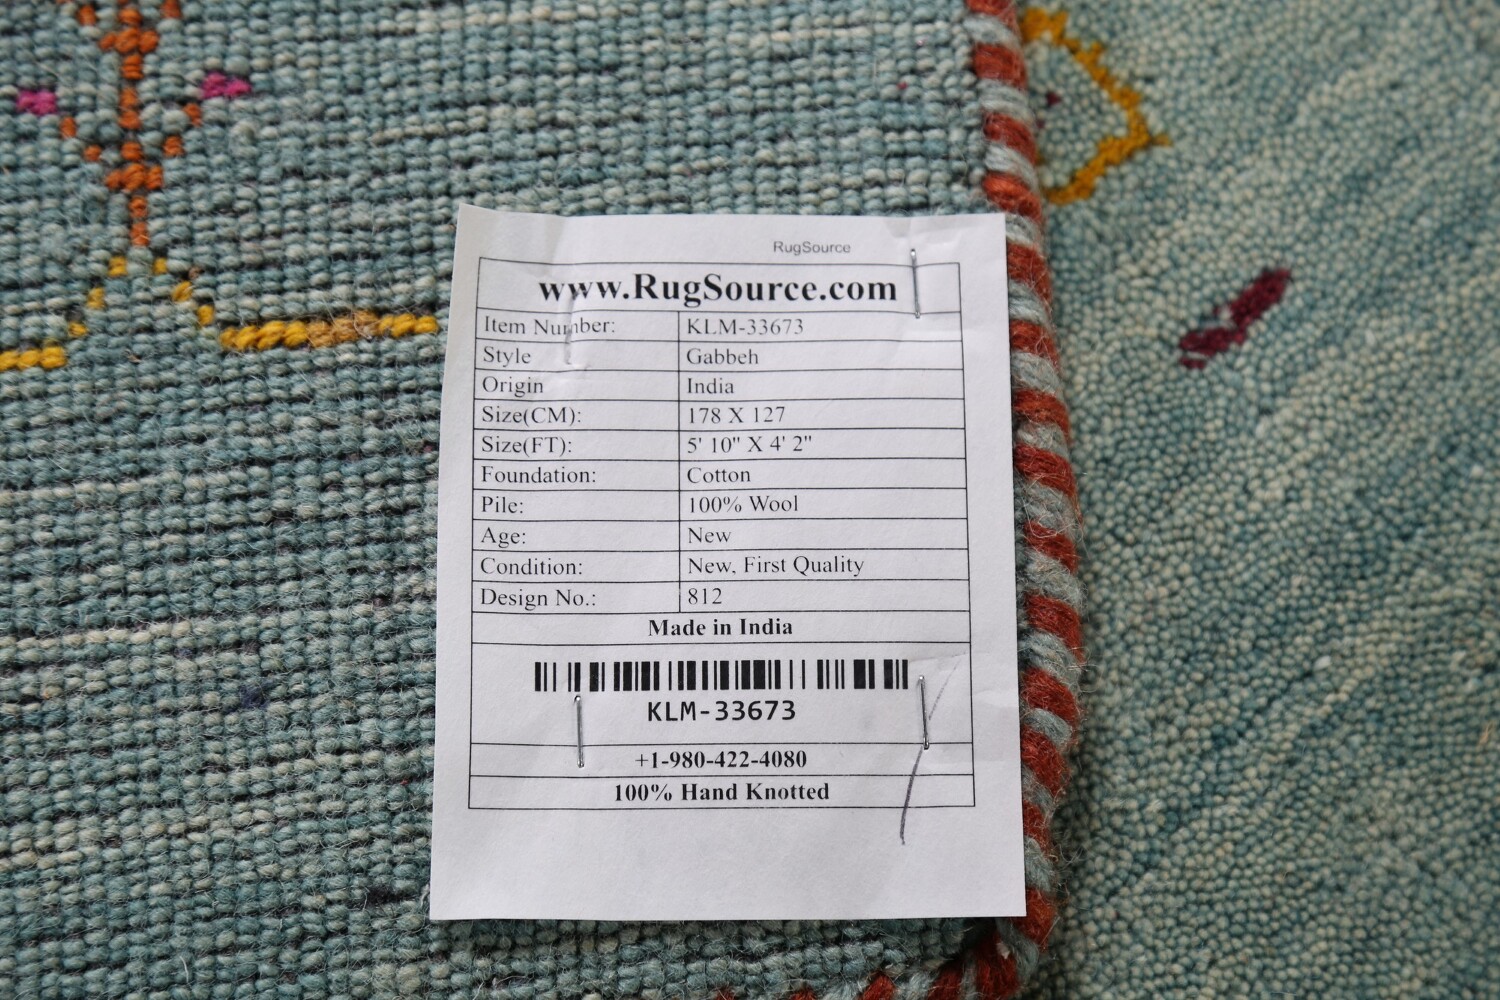 RugSource
www.RugSource.com
Item Number: KLM-33673
Style Gabbeh
Origin India
Size(CM): 178 X 127
Size(FT): 5' 10" X 4' 2"
Foundation: Cotton
Pile: 100% Wool
Age: New
Condition: New, First Quality
Design No.: 812
Made in India
KLM-33673
+1-980-422-4080
100% Hand Knotted